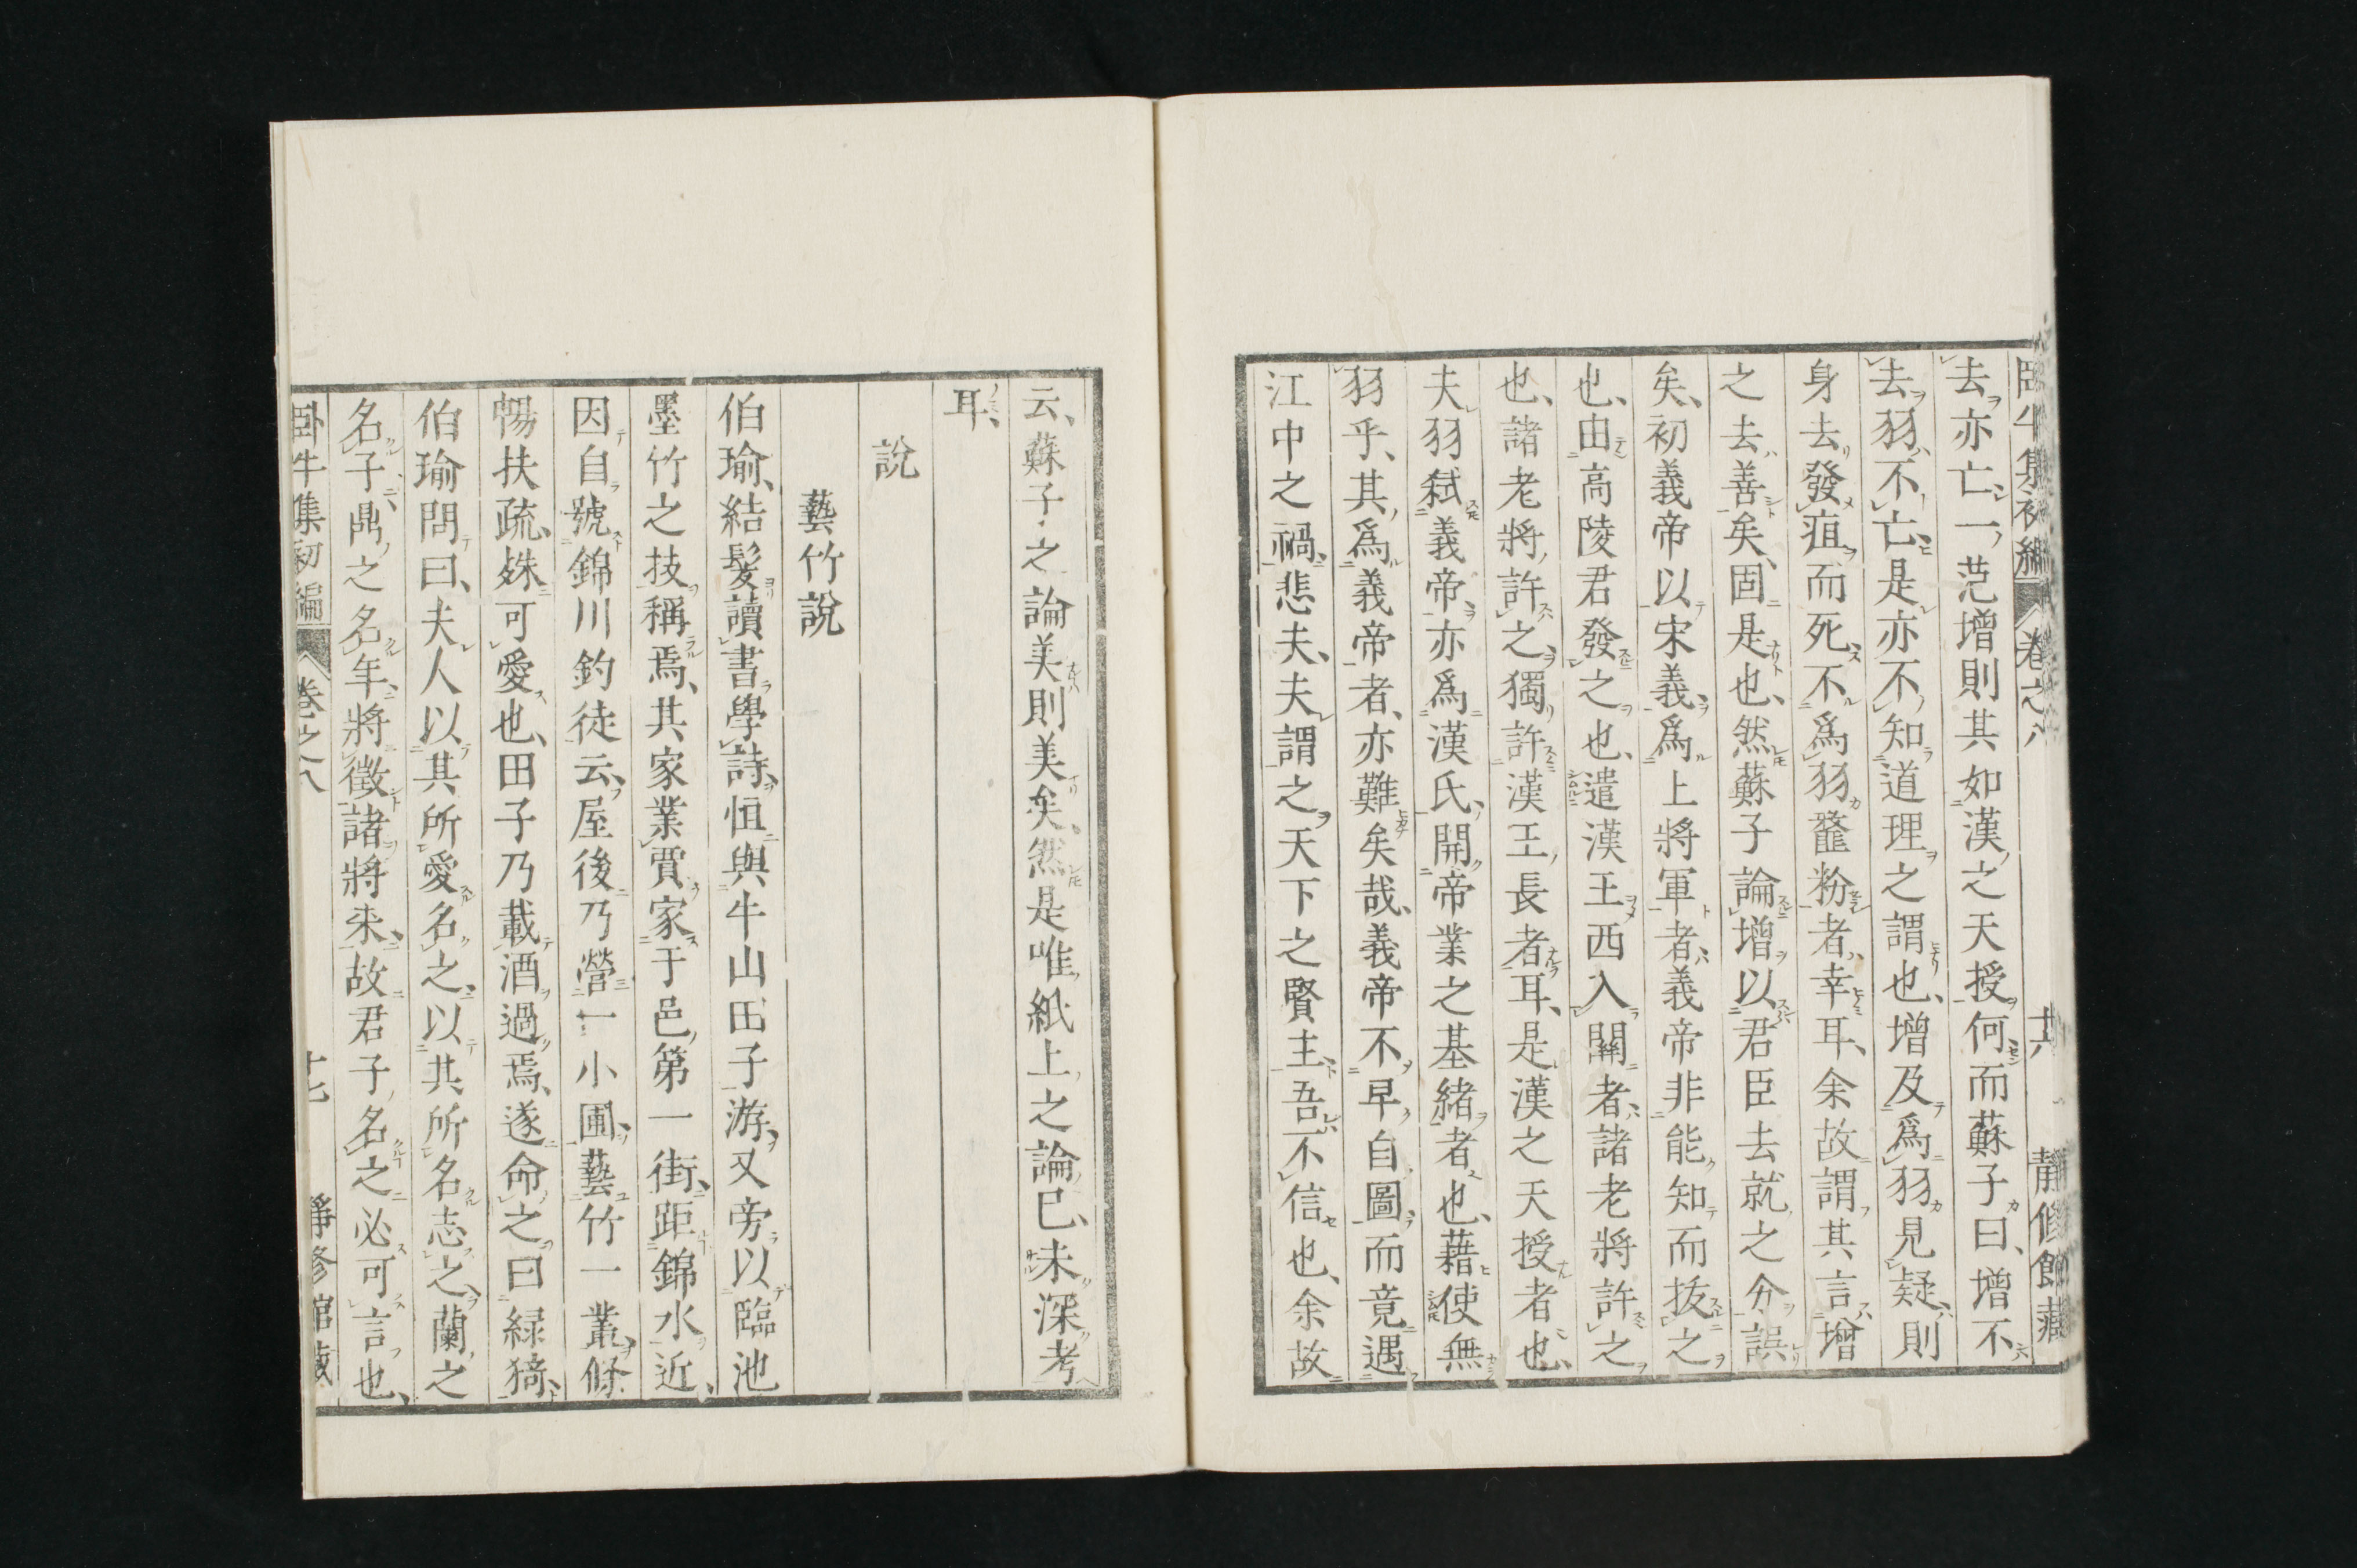 臥牛集初編 卷之八 十六 靜修館藏
去亦亡、一范增則其如漢之天授何、而蘇子曰、增不
去羽、不亡、是亦不知道理之謂也、增及爲羽見疑、則
身去發疽而死、不爲羽虀粉者、幸耳、余故謂其言增
之去善矣、固是也、然蘇子論增以君臣去就之分誤
矣、初義帝以宋義爲上將軍者、義帝非能知而拔之
也、由高陵君發之也、遣漢王西入關者、諸老將許之
也、諸老將許之、獨許漢王長者耳、是漢之天授者也、
夫羽弑義帝、亦爲漢氏開帝業之基緒者也、藉使無
羽乎、其爲義帝者、亦難矣哉、義帝不早自圖、而竟遇
江中之禍、悲夫、夫謂之天下之賢主、吾不信也、余故
云、蘇子之論美則美矣、然是唯紙上之論已、未深考
耳、
說
藝竹說
伯瑜、結髮讀書學詩、恒與牛山田子游、又旁以臨池
墨竹之技稱焉、其家業賈家于邑第一街、距錦水近、
因自號錦川釣徒云、屋後乃營一小圃、藝竹一叢、修
暢扶疏、姝可愛也、田子乃載酒過焉、遂命之曰綠猗、
伯瑜問曰、夫人以其所愛名之、以其所名志之、蘭之
名子鼎之名年、將徵諸將來、故君子名之必可言也、
臥牛集初編 卷之八 十七 靜修館藏